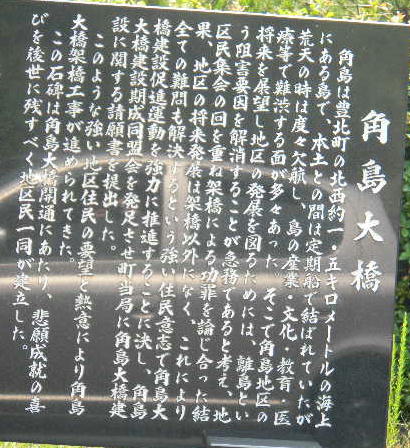 角島大橋
角島は豊北町の北西約一・五キロメートルの海上
にある島で、本土との間は定期船で結ばれていたが
荒天の時は度々欠航し、島の産業・文化　教育・医
療等で難渋する面が多々あった。そこで角島地区の
将来を展望し地区の発展を図るためには、離島とい
う阻害要因を解消することが急務であると考え、地
区民集会の回を重ね架橋による功罪を論じ合った結
果、地区の将来発展は架橋以外になく、これにより
全ての難問も解決するという強い住民意志で角島大
橋建設促進運動を強力に推進することに決し、角島
大橋建設期成同盟会を発足させ町当局に角島大橋建
設に関する請願書を提出した。
このような強い地区住民の要望と熱意により角島
大橋架橋工事が進められてきた。
この石碑は角島大橋開通にあたり、悲願成就の喜
びを後世に残すべく地区民一同が建立した。